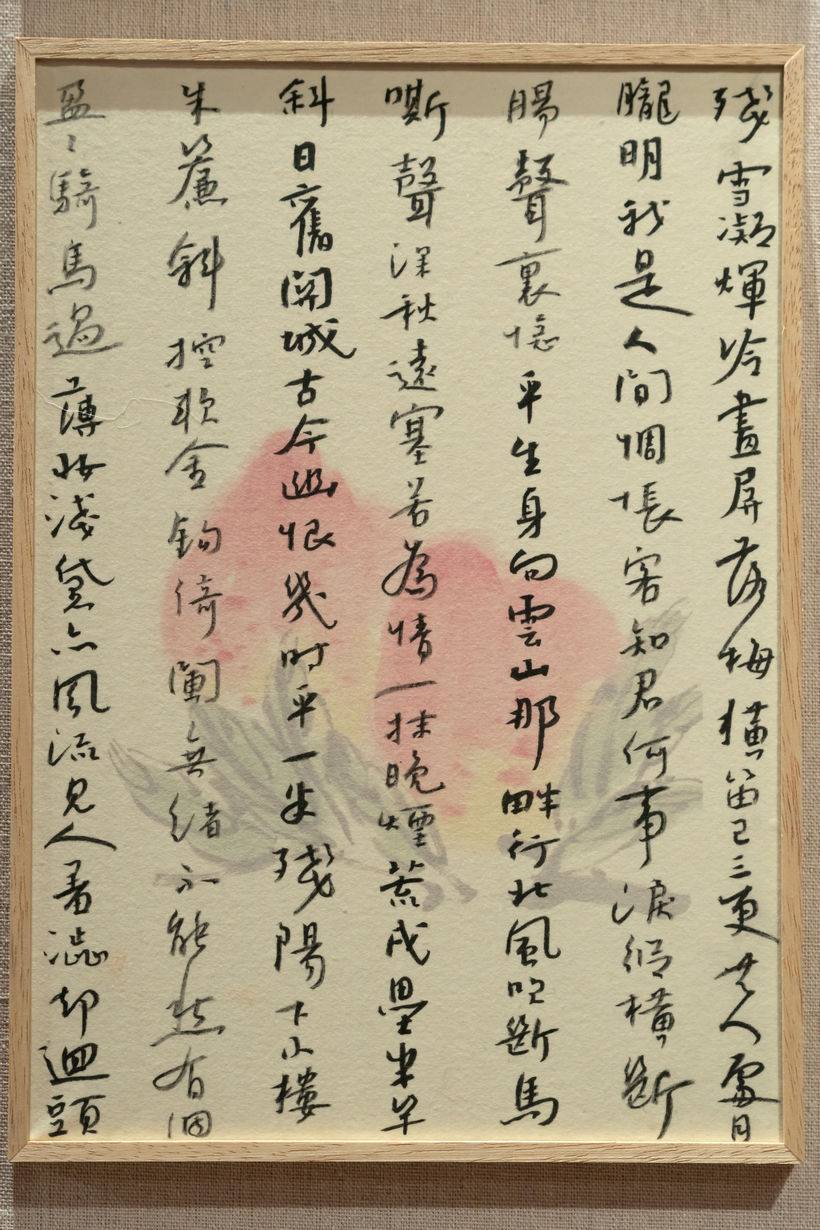 殘雪凝輝冷畫屏落梅橫笛已三更無人處月
朧明我是人間惆悵客知君何事淚縱橫斷
腸聲裏憶平生身向雲山那畔行北風吹斷馬
嘶聲深秋遠塞若為情一抹晚煙荒戍壘半竿
斜日舊關城古今幽恨幾時平一半殘陽下小樓
朱簾斜控軟金鉤倚闌無緒不能愁有個
盈々騎馬過薄妝淺黛亦風流見人羞澀卻迴頭